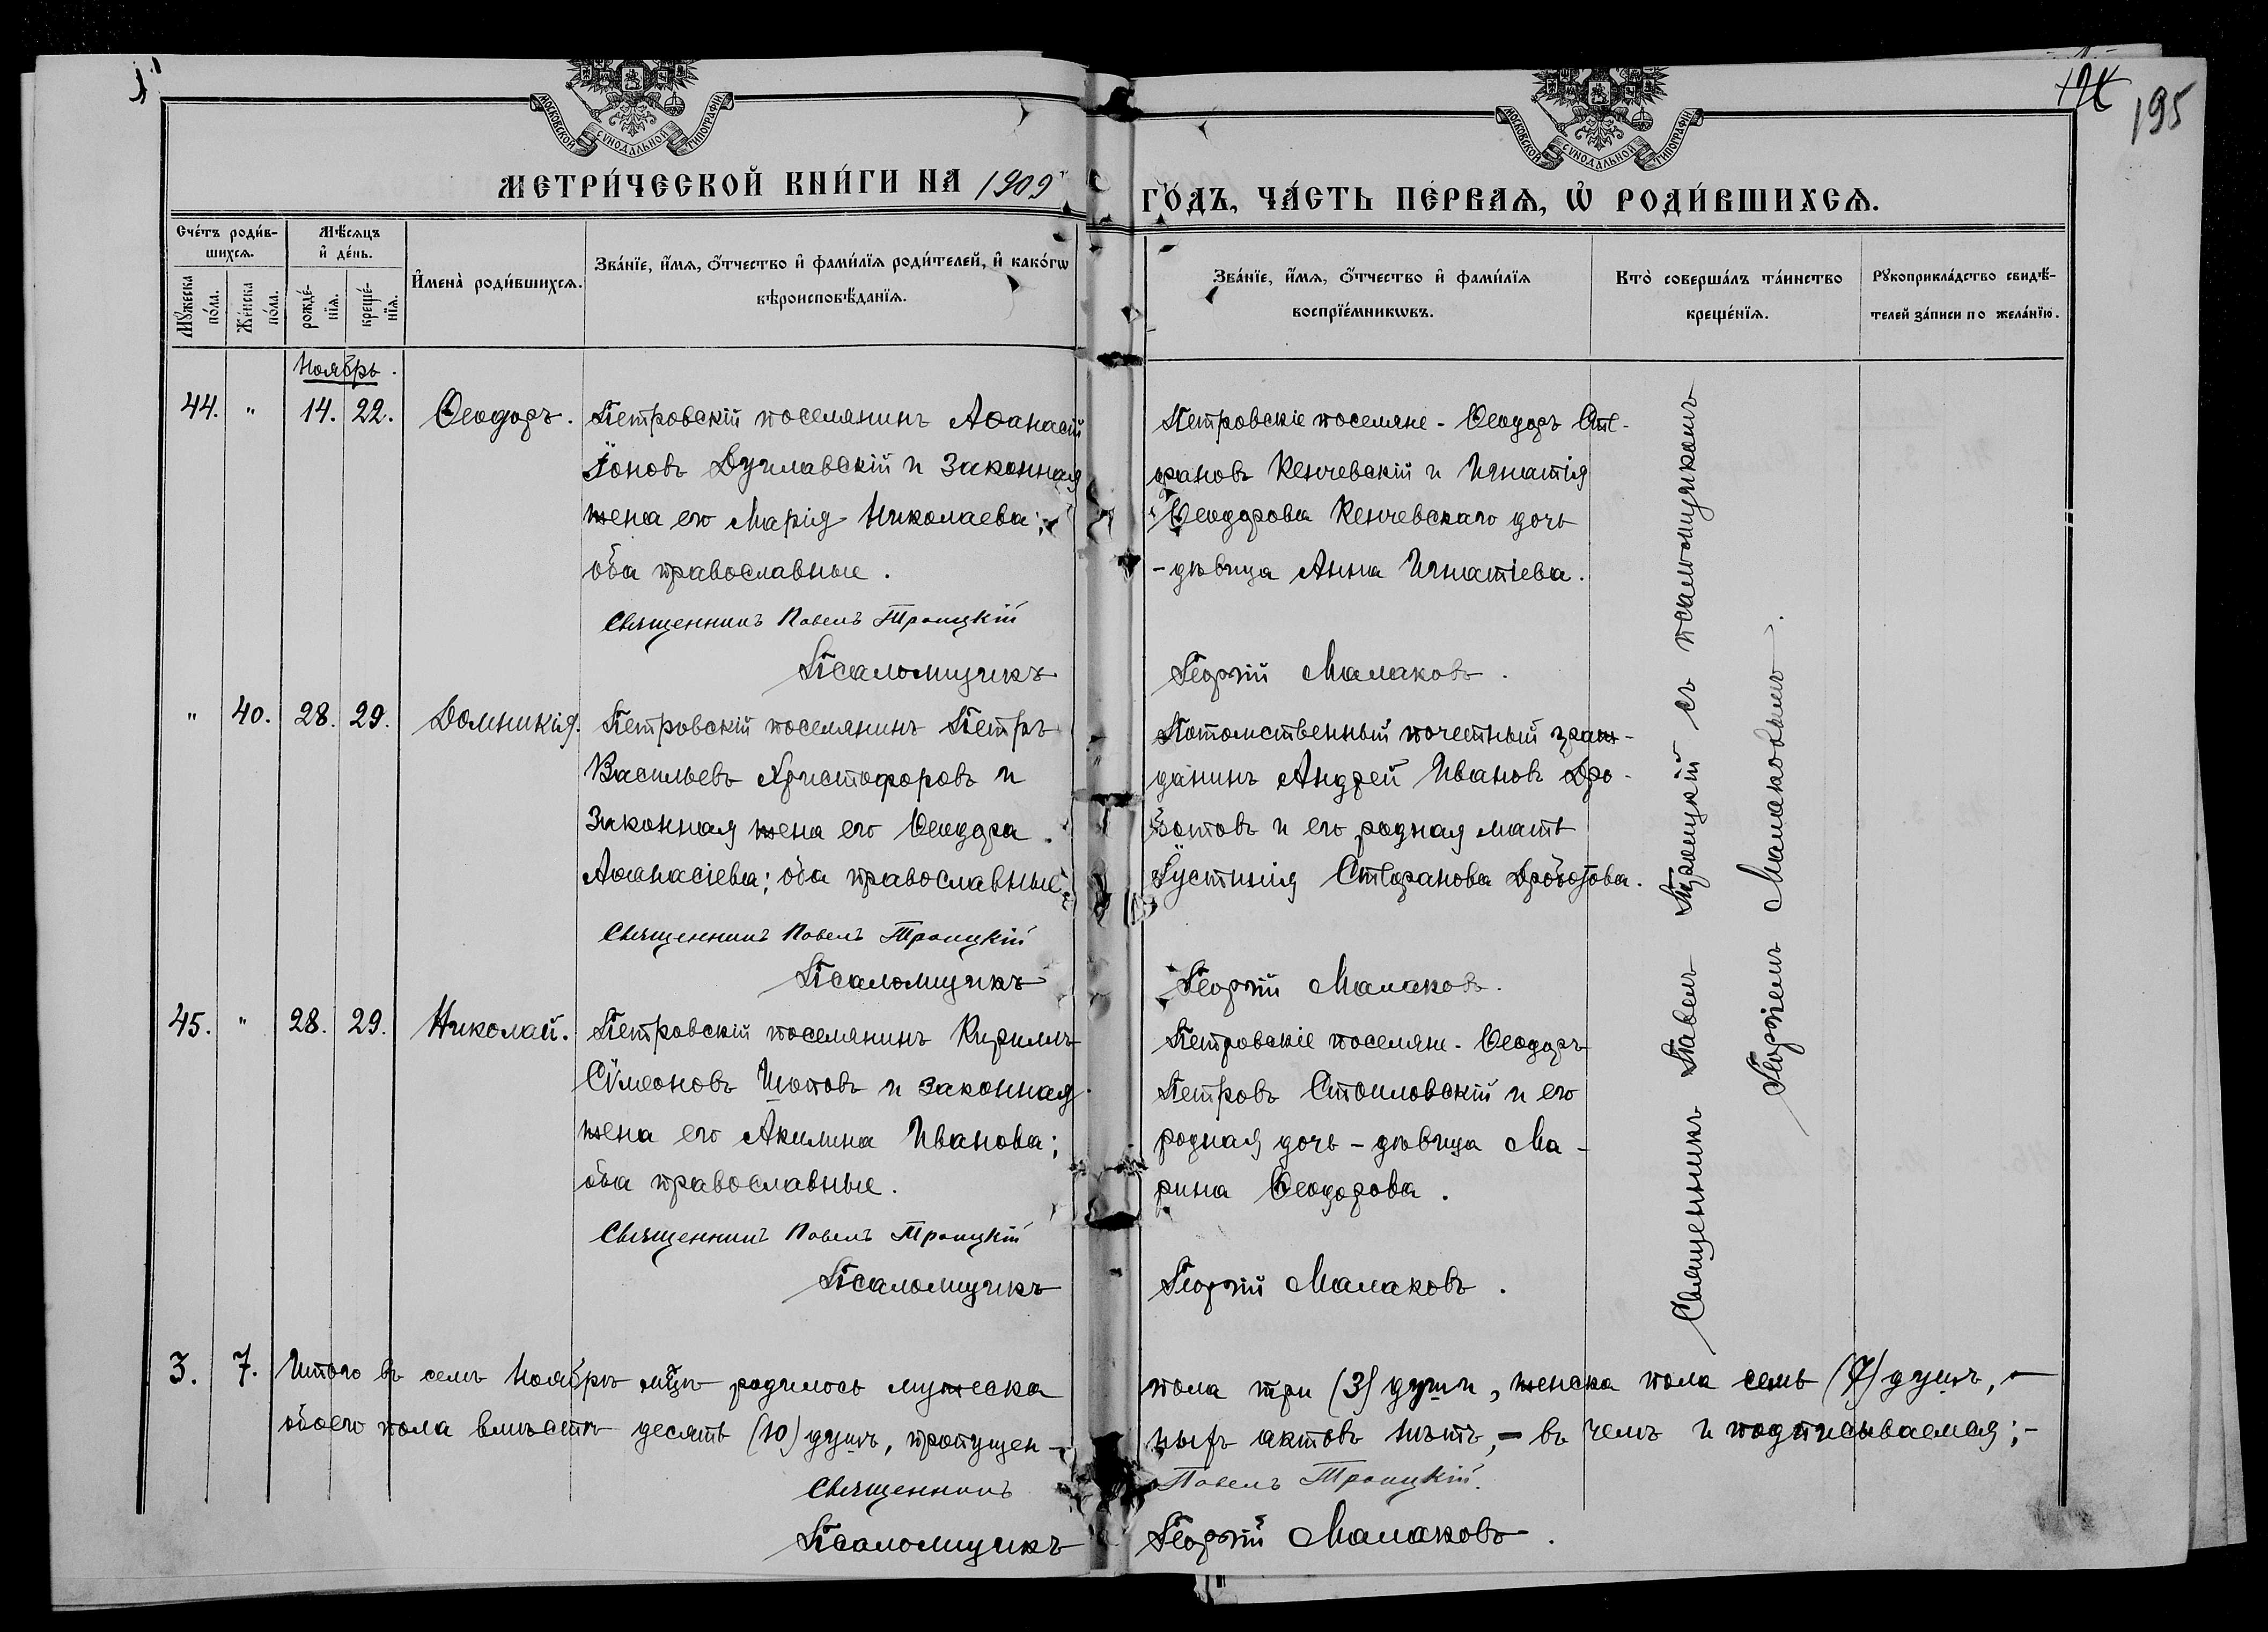 194 195
МОСКОВСКОЙ СѴНОДАЛЬНОЙ ТИПОГРАФІИ
МОСКОВСКОЙ СѴНОДАЛЬНОЙ ТИПОГРАФІИ
МЕТРИ́ЧЕСКОЙ КНИ́ГИ НА 1909
ГО́ДЪ, ЧА́СТЬ ПЕ́РВАѦ, Ѡ҆ РОДИ́ВШИХСѦ.
Сче́тъ роди́в-
шихсѧ.
Мꙋ́жеска по́ла.
Же́нска по́ла.
Мѣ́сѧцъ
и҆ де́нь.
рожде́-
нїѧ.
креще́-
нїѧ.
И҆мена̀ роди́вшихсѧ.
Зва́нїе, и҆́мѧ, ѻ҆́тчество и҆ фами́лїѧ роди́телей, и҆ како́гѡ
вѣроисповѣ́данїѧ.
Зва́нїе, и҆́мѧ, ѻ҆́тчество и҆ фами́лїѧ
воспрїе́мникѡвъ.
Кто̀ соверша́лъ та́инство
креще́нїѧ.
Рꙋкоприкла́дство свидѣ́-
телей за́писи по жела́нїю.
Ноябрь.
44. " 14. 22. Ѳеодоръ. Петровскій поселянинъ Аѳанасій
Іоновъ Дуплавскій и законная
жена его Марія Николаева;
оба православные.
Священникъ Павелъ Троицкій
Псаломщикъ
Петровскіе поселяне - Ѳеодоръ Сте-
фановъ Кенчевскій и Игнатія
Ѳеодорова Кенчевскаго дочь
- дѣвица Анна Игнатіева.
Георгій Малаковъ.
" 40. 28. 29. Домникія. Петровскій поселянинъ Петръ
Васильевъ Христофоровъ и
законная жена его Ѳеодора
Аѳанасіева; оба православные.
Священникъ Павелъ Троицкій
Псаломщикъ
Потомственный почетный граж-
данинъ Андрей Ивановъ Дро-
ботовъ и его родная мать
Іустинія Стефанова Дроботова.
Георгій Малаковъ.
45. " 28. 29. Николай. Петровскій поселянинъ Кириллъ
Сѵмеоновъ Шоповъ и законная
жена его Акилина Иванова;
оба православные.
Священникъ Павелъ Троицкій
Псаломщикъ
Петровскіе поселяне - Ѳеодоръ
Петровъ Стоиловскій и его
родная дочь - дѣвица Ма-
рина Ѳеодорова.
Георгій Малаковъ.
Священникъ Павелъ Троицкій съ псаломщикомъ
Георгіемъ Малаковымъ.
3. 7. Итого въ семъ Ноябрѣ мцѣ родилось мужеска пола три (3) души, женска пола семь (7) душъ, -
обоего пола вмѣстѣ десять (10) душъ, пропущен- ныхъ актовъ нѣтъ, - въ чемъ и подписываемся; -
Священникъ Павелъ Троицкій.
Псаломщикъ Георгій Малаковъ.